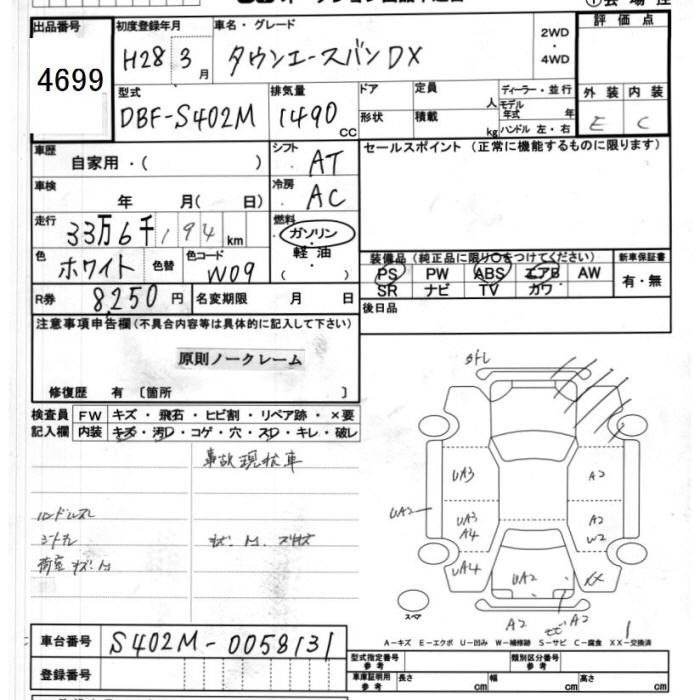 出品番号
4699
初度登録年月
H28 3 月
車名・グレード
タウンエースバン DX
2WD
・
4WD
評価点
外装 内装
E C
型式
DBF-S402M
排気量
1490 cc
ドア
形状
定員 人
積載 kg
ディーラー・並行
モデル年式 年
ハンドル 左・右
車歴
自家用・( )
シフト
AT
セールスポイント（正常に機能するものに限ります）
車検
年 月( 日)
冷房
AC
走行
33万6千194 km
燃料
ガソリン
・
軽油
( )
色
ホワイト
色替
色コード
W09
装備品（純正品に限り○をつけてください）
PS PW ABS エアB AW
SR ナビ TV カワ
新車保証書
有・無
R券
8,250 円
名変期限 月 日
後日品
注意事項申告欄(不具合内容等は具体的に記入して下さい)
原則ノークレーム
修復歴 有〔箇所 〕
検査員
記入欄
FW キズ・飛石・ヒビ割・リペア跡・×要
内装 キズ・汚レ・コゲ・穴・スレ・キレ・破レ
事故現状車
ハンドルスレ
シートスレ
荷室キズ・M
外し
UA3
UA3
A4
UA4
UA2
UA2
A2
A2
W2
XX
A2
A2
スペア
A－キズ E－エクボ U－凹み W－補修跡 S－サビ C－腐食 XX－交換済
車台番号
S402M-0058131
登録番号
型式指定番号
参考
類別区分番号
参考
車庫証明用
参考
長さ cm
幅 cm
高さ cm